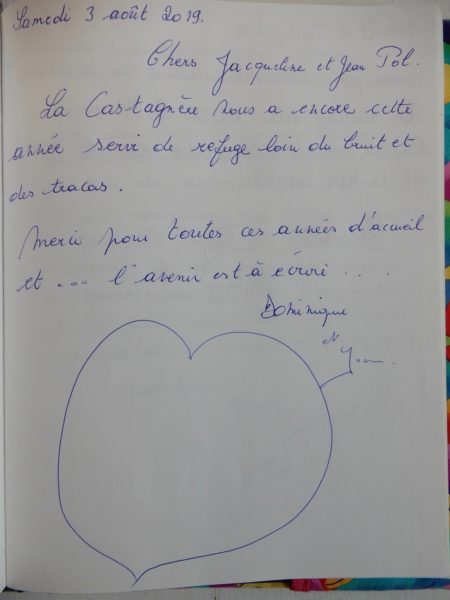 Samedi 3 août 2019.
Chers Jacqueline et Jean Pol.
La Castagnère nous a encore cette
année servi de refuge loin du bruit et
des tracas.
Merci pour toutes ces années d'accueil
et ... l'avenir est à écrire ...
Dominique
et